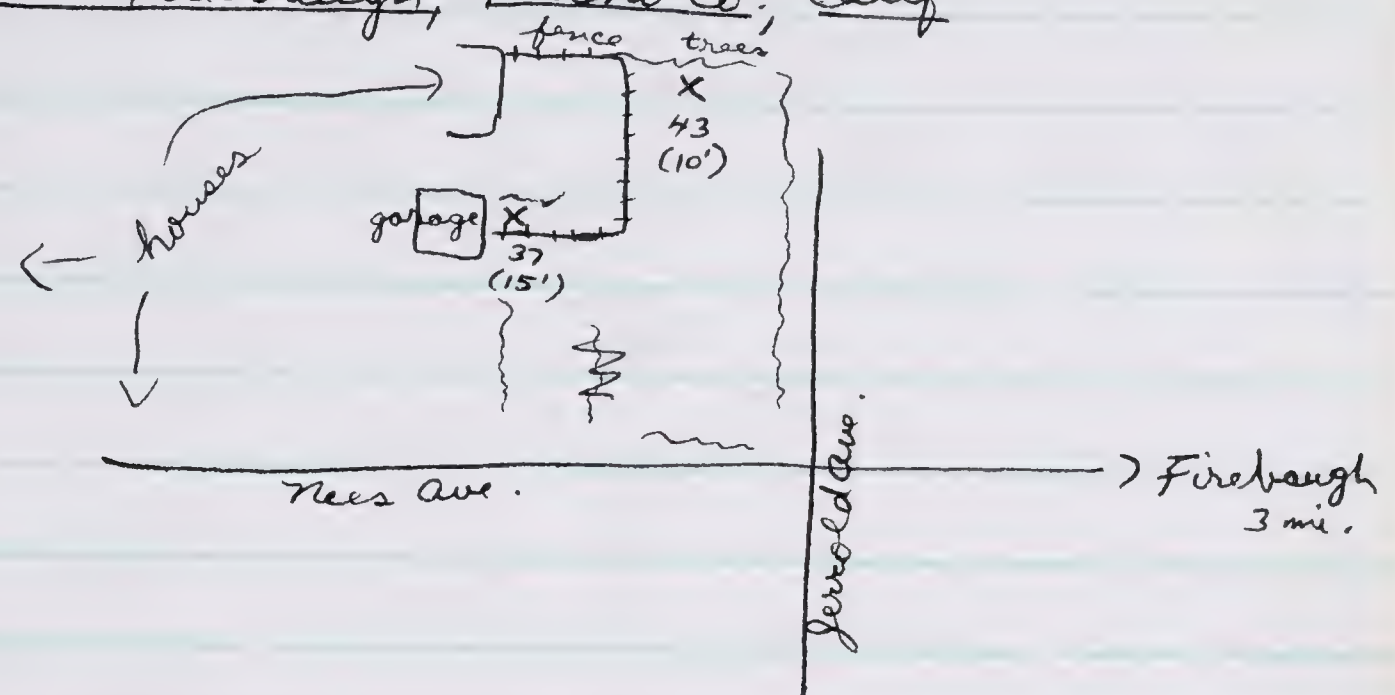 Co., Calif
fence trees
X
43
(10')
houses
garage X
37
(15')
Nees Ave.
Jerrold Ave.
Firebaugh
3 mi.